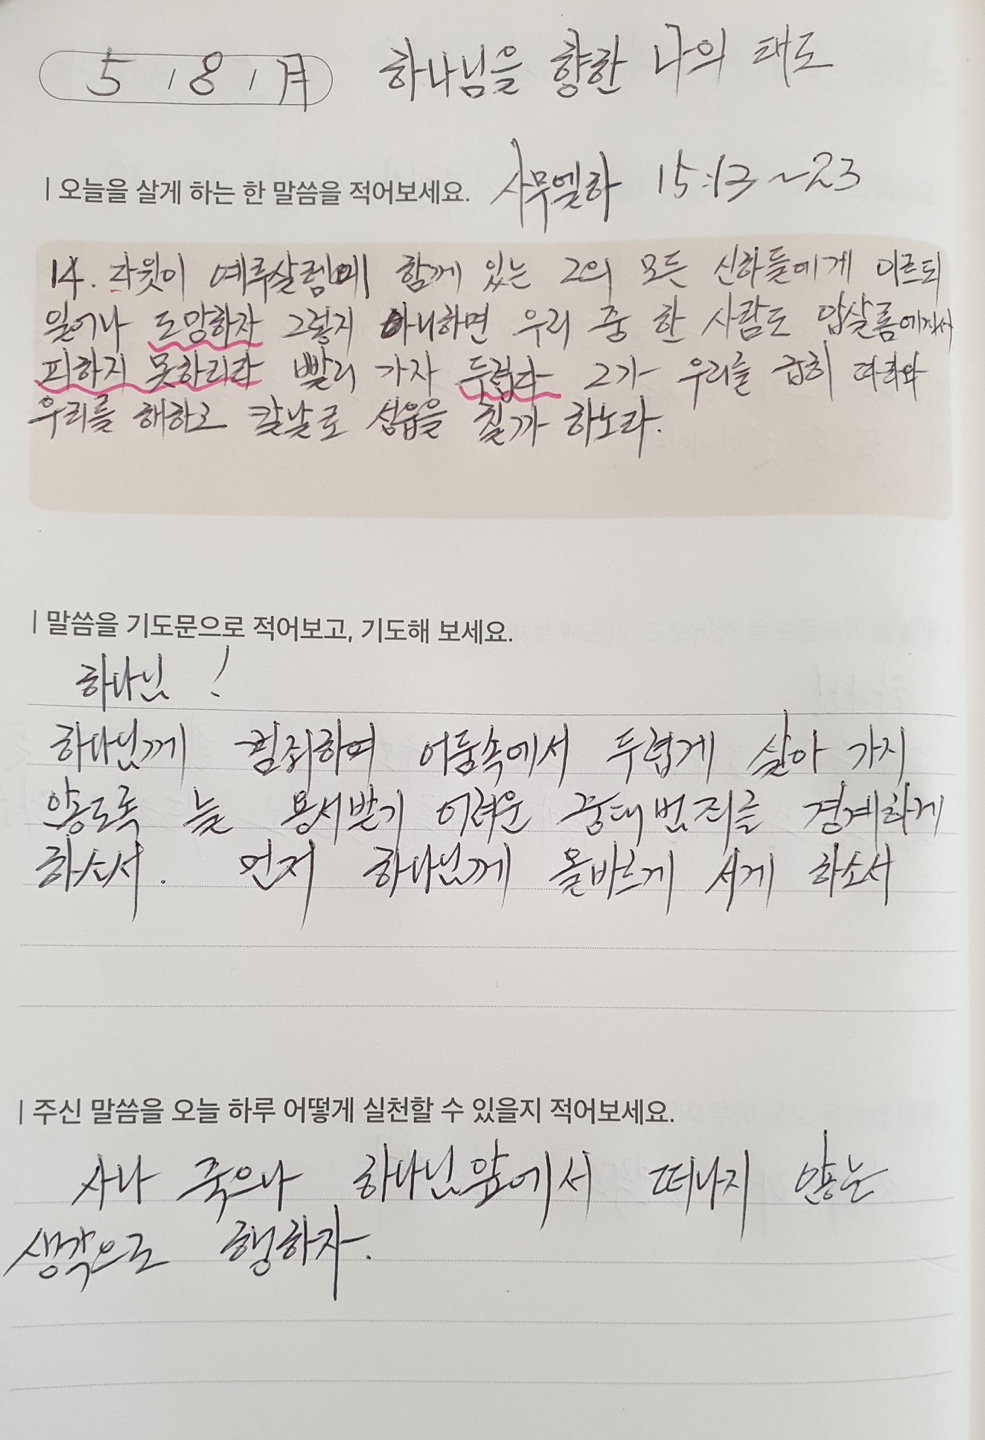 5 / 8 / 月 하나님을 향한 나의 태도
| 오늘을 살게 하는 한 말씀을 적어보세요. 사무엘하 15:13~23
14. 다윗이 예루살렘에 함께 있는 그의 모든 신하들에게 이르되
일어나 도망하자 그렇지 아니하면 우리 중 한 사람도 압살롬에게서
피하지 못하리라 빨리 가자 두렵다 그가 우리를 급히 따라와
우리를 해하고 칼날로 성읍을 칠까 하노라.
| 말씀을 기도문으로 적어보고, 기도해 보세요.
하나님 !
하나님께 범죄하여 어둠속에서 두렵게 살아 가지
않도록 늘 용서받기 어려운 중대범죄를 경계하게
하소서. 먼저 하나님께 올바르게 서게 하소서
| 주신 말씀을 오늘 하루 어떻게 실천할 수 있을지 적어보세요.
사나 죽으나 하나님앞에서 떠나지 않는
생각으로 행하자.